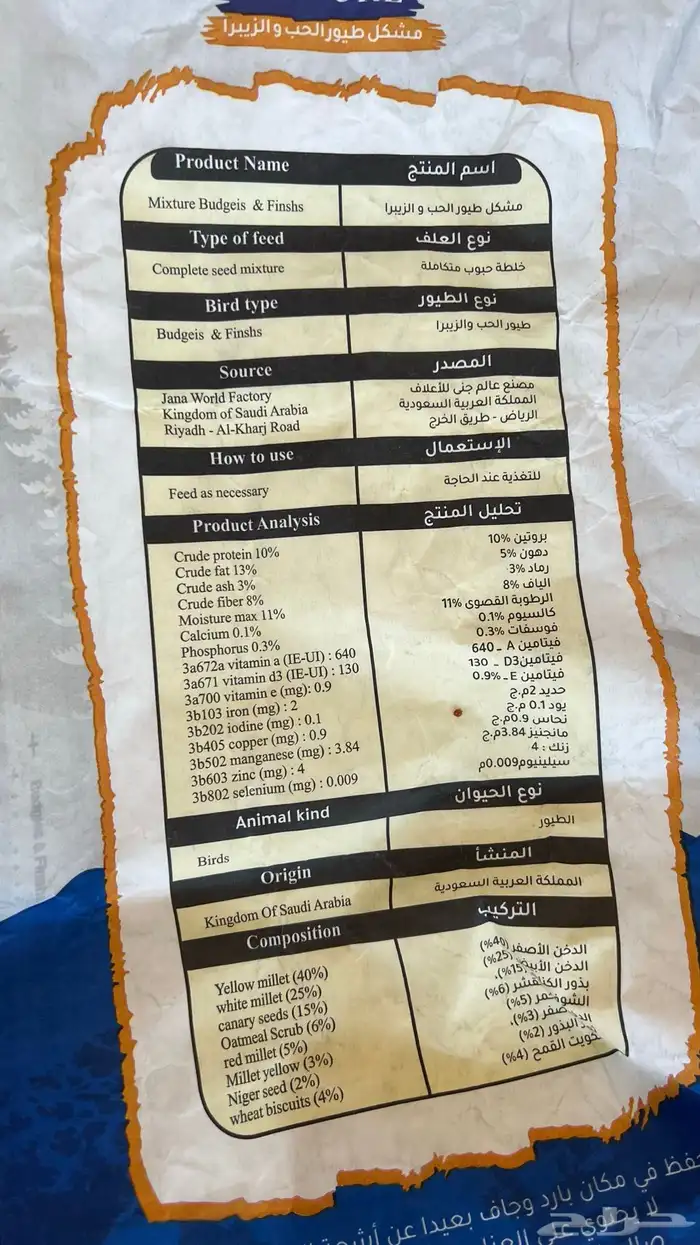 مشكل طيور الحب و الزيبرا
Product Name اسم المنتج
Mixture Budgeis & Finshs مشكل طيور الحب و الزيبرا
Type of feed نوع العلف
Complete seed mixture خلطة حبوب متكاملة
Bird type نوع الطيور
Budgeis & Finshs طيور الحب والزيبرا
Source المصدر
Jana World Factory مصنع عالم جنى للأعلاف
Kingdom of Saudi Arabia المملكة العربية السعودية
Riyadh - Al-Kharj Road الرياض - طريق الخرج
How to use الإستعمال
Feed as necessary للتغذية عند الحاجة
Product Analysis تحليل المنتج
Crude protein 10%
Crude fat 13%
Crude ash 3%
Crude fiber 8%
Moisture max 11%
Calcium 0.1%
Phosphorus 0.3%
3a672a vitamin a (IE-UI) : 640
3a671 vitamin d3 (IE-UI) : 130
3a700 vitamin e (mg): 0.9
3b103 iron (mg) : 2
3b202 iodine (mg) : 0.1
3b405 copper (mg) : 0.9
3b502 manganese (mg) : 3.84
3b603 zinc (mg) : 4
3b802 selenium (mg) : 0.009
بروتين 10%
دهون 5%
رماد 3%
الياف 8%
الرطوبة القصوى 11%
كالسيوم 0.1%
فوسفات 0.3%
فيتامين A ـ 640
فيتامين D3 ـ 130
فيتامين E ـ 0.9%
حديد 2م.ج
يود 0.1 م.ج
نحاس 0.9م.ج
مانجنيز 3.84م.ج
زنك : 4
سيلينيوم0.009م
Animal kind نوع الحيوان
Birds الطيور
Origin المنشأ
Kingdom Of Saudi Arabia المملكة العربية السعودية
Composition التركيب
Yellow millet (40%)
white millet (25%)
canary seeds (15%)
Oatmeal Scrub (6%)
red millet (5%)
Millet yellow (3%)
Niger seed (2%)
wheat biscuits (4%)
الدخن الأصفر (40%)
الدخن الأبيض (25%)
بذور (15%).
(6%)
(5%)
(3%).
(2%)
القمح (4%)
في مكان بارد وجاف بعيدا عن
لا يحتوي على
حراج